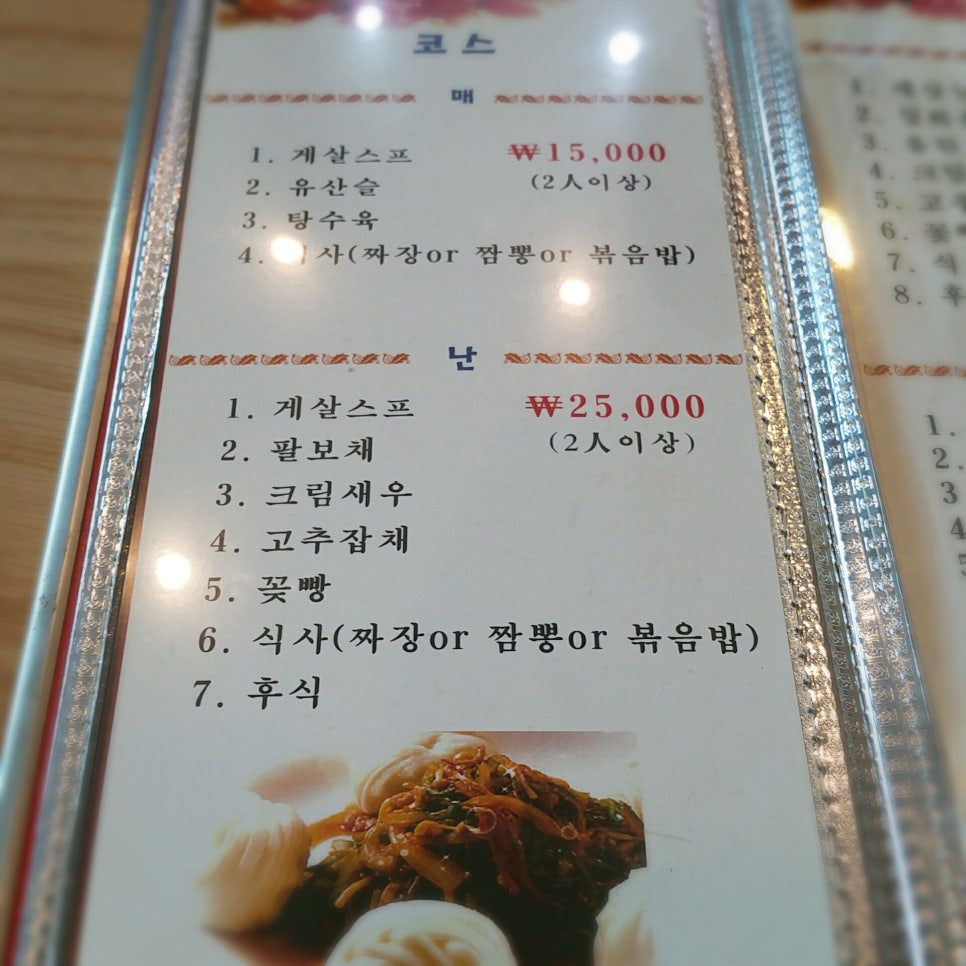 코스
매
1. 게살스프 ₩15,000
2. 유산슬 (2人이상)
3. 탕수육
4. 식사(짜장or 짬뽕or 볶음밥)
난
1. 게살스프 ₩25,000
2. 팔보채 (2人이상)
3. 크림새우
4. 고추잡채
5. 꽃빵
6. 식사(짜장or 짬뽕or 볶음밥)
7. 후식
1.
2.
3.
4. 크림
5. 고추
6. 꽃빵
7. 식
8. 후
1.
2.
3
4
5